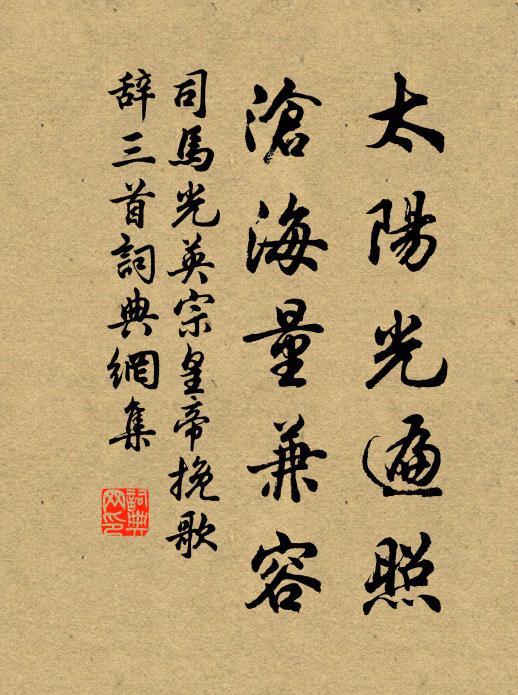 太陽光遍照
滄海量兼容
司馬光英宗皇帝挽歌
辞三首詞典網集
詞典网印